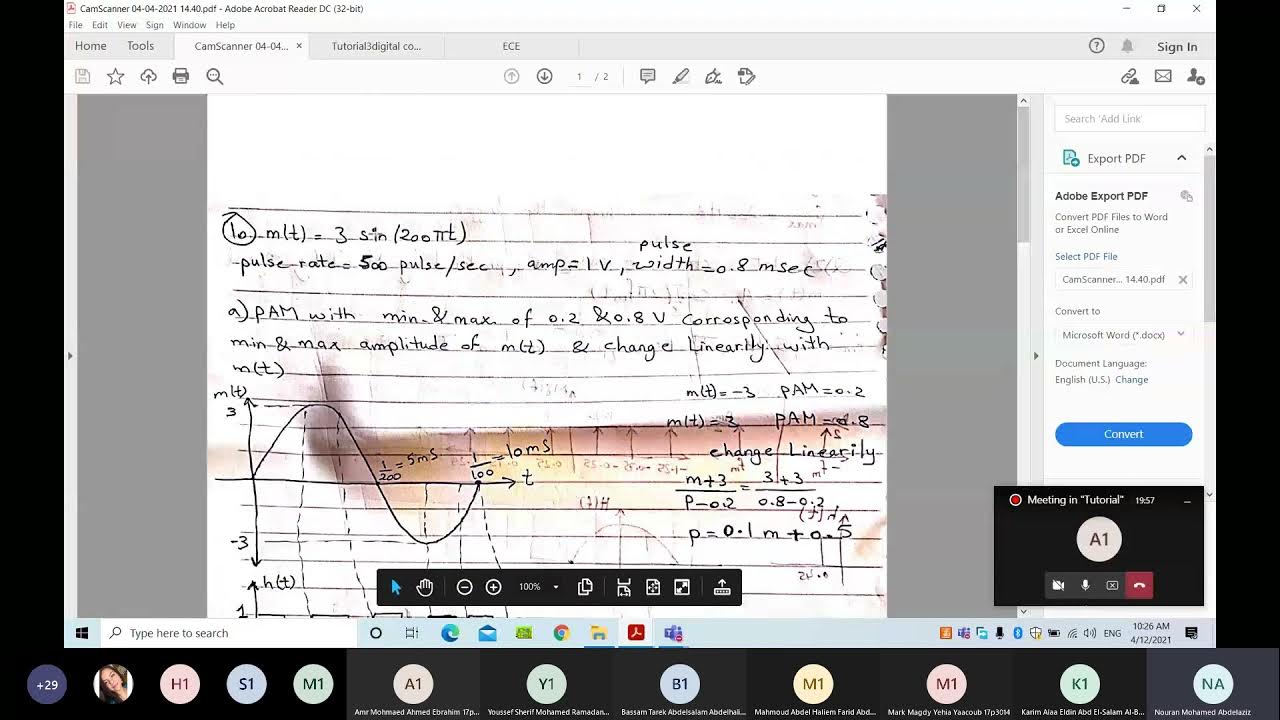 CamScanner 04-04-2021 14.40.pdf - Adobe Acrobat Reader DC (32-bit)
File Edit View Sign Window Help
Home Tools CamScanner 04-04... × Tutorial3digital co... ECE Sign In
1 / 2
Search 'Add Link'
Export PDF
Adobe Export PDF
Convert PDF Files to Word
or Excel Online
Select PDF File
CamScanner ... 14.40.pdf
Convert to
Microsoft Word (*.docx)
Document Language:
English (U.S.) Change
Convert
10) m(t) = 3 sin (200πt)
pulse rate = 500 pulse/sec, amp = 1 V, pulse width = 0.8 msec
a) PAM with min. & max. of 0.2 & 0.8 V corresponding to
min & max amplitude of m(t) & change Linearily with
m(t)
m(t) = -3 PAM = 0.2
m(t) = 3 PAM = 0.8
change Linearily
m+3 / P-0.2 = 3+3 / 0.8-0.2
P = 0.1 m + 0.5
m(t)
3
1/200 = 5ms
1/100 = 10ms
t
-3
h(t)
1
H(f)
100%
Meeting in "Tutorial" 19:57
A1
Type here to search
ENG
10:26 AM
4/12/2021
+29 H1 S1 M1 A1 Y1 B1 M1 M1 K1 NA
Amr Mohmaed Ahmed Ebrahim 17p... Youssef Sherif Mohamed Ramadan... Bassam Tarek Abdelsalam Abdelhali... Mahmoud Abdel Haliem Farid Abd... Mark Magdy Yehia Yaacoub 17p3014 Karim Alaa Eldin Abd El-Salam Al-B... Nouran Mohamed Abdelaziz